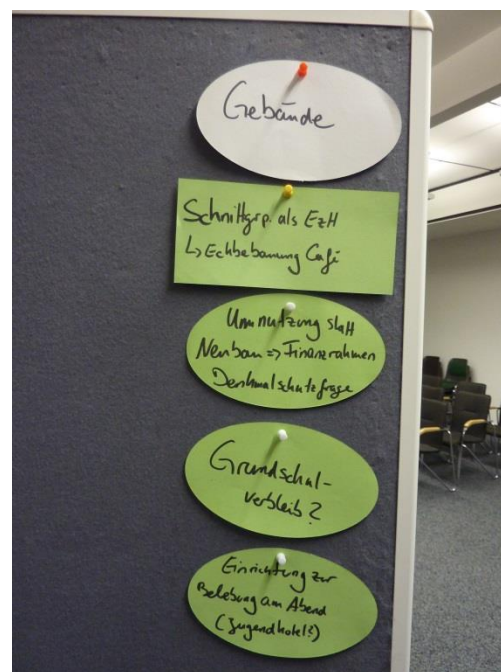 Gebäude
Schnittgrp. als EzH
↳ Eckbebauung Café
Umnutzung statt
Neubau => Finanzrahmen
Denkmalschutzfrage
Grundschul-
verbleib?
Einrichtung zur
Belebung am Abend
(Jugendhotel?)